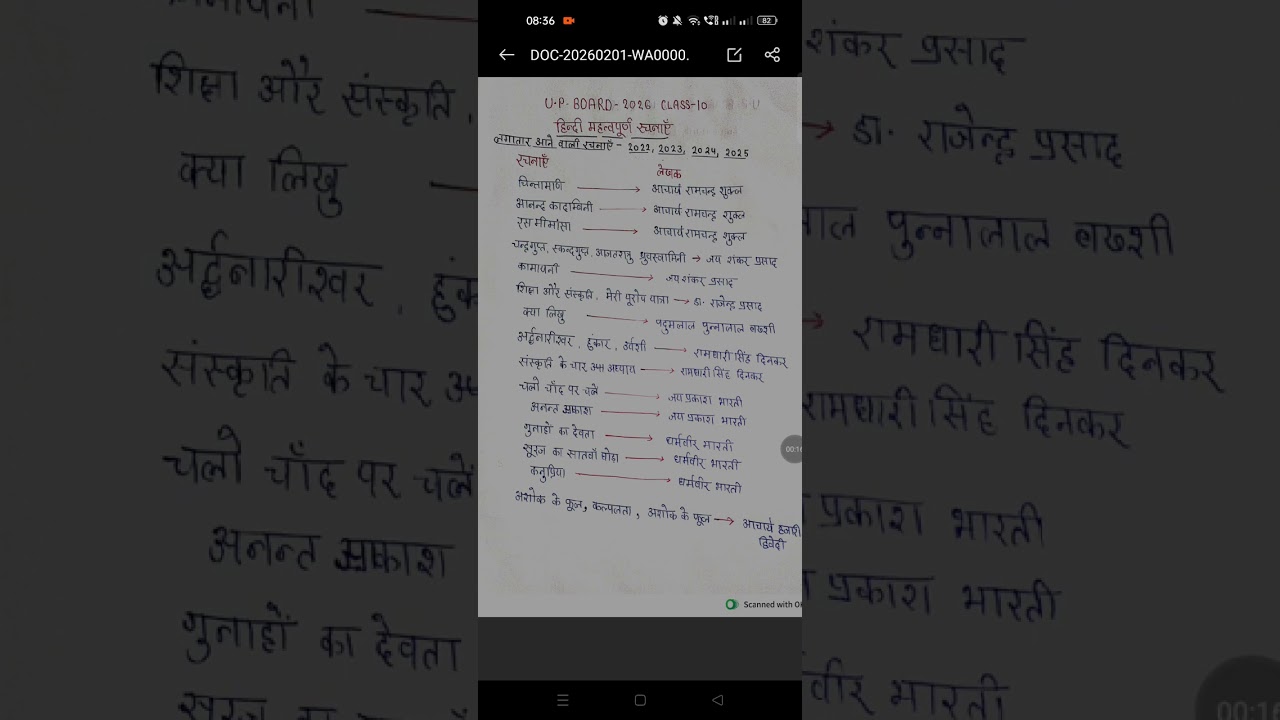 08:36
82
DOC-20260201-WA0000.
U.P. BOARD-2026 CLASS-10
हिन्दी महत्वपूर्ण रचनाएँ
लगातार आने वाली रचनाएँ - 2022, 2023, 2024, 2025
रचनाएँ लेखक
चिन्तामणि → आचार्य रामचन्द्र शुक्ल
आनन्द कादम्बिनी → आचार्य रामचन्द्र शुक्ल
रस मीमांसा → आचार्य रामचन्द्र शुक्ल
चन्द्रगुप्त, स्कन्दगुप्त, अजातशत्रु ध्रुवस्वामिनी → जय शंकर प्रसाद
कामायनी → जय शंकर प्रसाद
शिक्षा और संस्कृति, मेरी यूरोप यात्रा → डा. राजेन्द्र प्रसाद
क्या लिखु → पदुमलाल पुन्नालाल बख्शी
अर्द्धनारीश्वर, हुंकार, → रामधारी सिंह दिनकर
संस्कृति के चार अध्याय → रामधारी सिंह दिनकर
चलो चाँद पर चलें → जय प्रकाश भारती
अनन्त आकाश → जय प्रकाश भारती
गुनाहों का देवता → धर्मवीर भारती
सूरज का सातवाँ घोड़ा → धर्मवीर भारती
कनुप्रिया → धर्मवीर भारती
अशोक के फूल, कल्पलता, अशोक के फूल → आचार्य हजारी
द्विवेदी
Scanned with OK
00:16